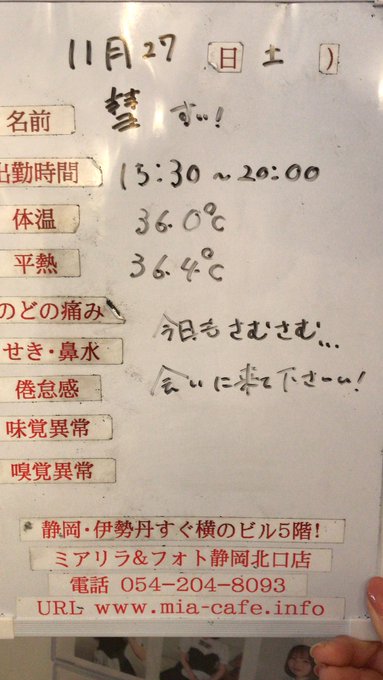 11月27 日 土 )
名前 彗 すい!
出勤時間 15:30~20:00
体温 36.0℃
平熱 36.4℃
のどの痛み
今日もさむさむ...
せき・鼻水
会いに来て下さーい!
倦怠感
味覚異常
嗅覚異常
静岡・伊勢丹すぐ横のビル5階!
ミアリラ&フォト静岡北口店
電話 054-204-8093
URL www.mia-cafe.info